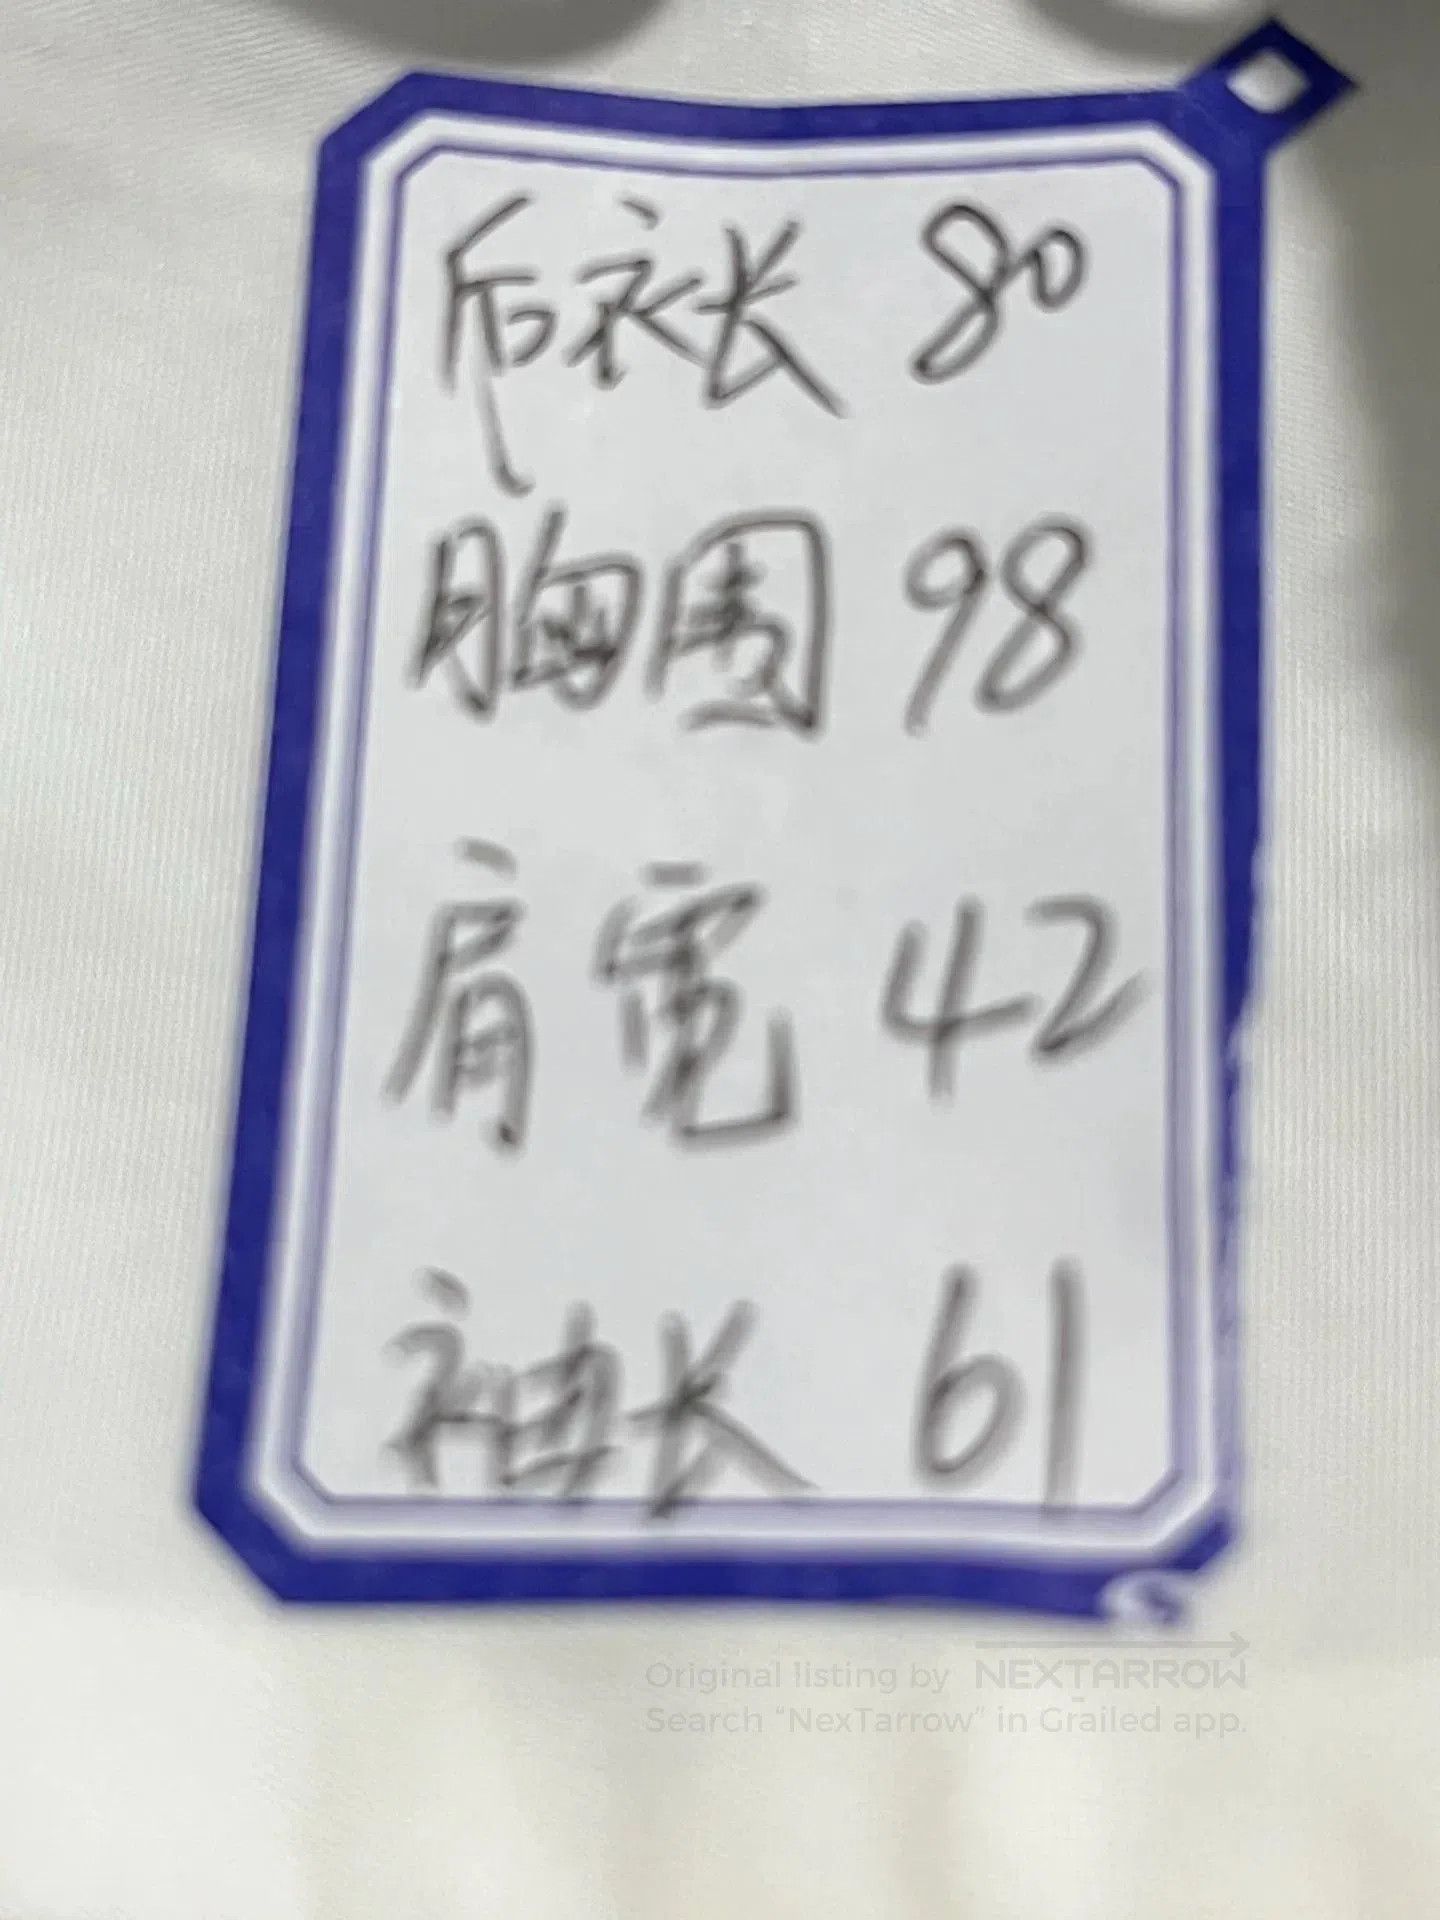 后衣长 80
胸围 98
肩宽 42
袖长 61
Original listing by NEXTARROW
Search “NexTarrow” in Grailed app.